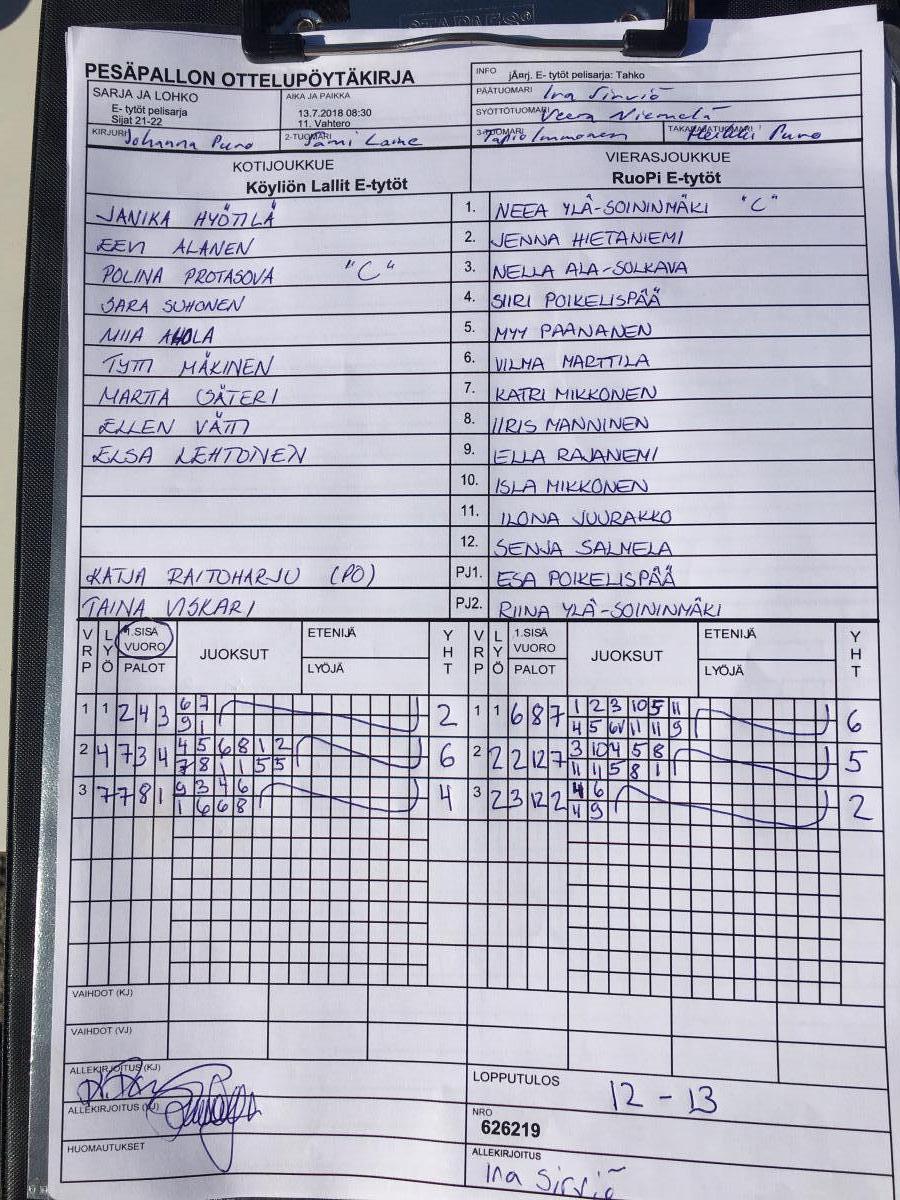 PESÄPALLON OTTELUPÖYTÄKIRJA
SARJA JA LOHKO
E- tytöt pelisarja
Sijat 21-22
AIKA JA PAIKKA
13.7.2018 08:30
11. Vahtero
INFO jÄ¤rj. E- tytöt pelisarja: Tahko
PÄÄTUOMARI Ina Sirviö
SYÖTTÖTUOMARI Veera Niemelä
KIRJURI Johanna Puro
2-TUOMARI Jami Laine
3-TUOMARI Tapio Immonen
TAKARAJATUOMARI Heikki Puro
KOTIJOUKKUE
Köyliön Lallit E-tytöt
VIERASJOUKKUE
RuoPi E-tytöt
JANIKA HYÖTILÄ 1. NEEA YLÄ-SOININMÄKI "C"
EEVI ALANEN 2. JENNA HIETANIEMI
POLINA PROTASOVA "C" 3. NELLA ALA-SOLKAVA
SARA SUHONEN 4. SIIRI POIKELISPÄÄ
MIIA AHOLA 5. MYY PAANANEN
TYTTI MÄKINEN 6. VILMA MARTTILA
MARTTA SÄTERI 7. KATRI MIKKONEN
ELLEN VÄTTI 8. IIRIS MANNINEN
ELSA LEHTONEN 9. ELLA RAJANEMI
10. ISLA MIKKONEN
11. ILONA JUURAKKO
12. SENJA SALMELA
KATJA RAITOHARJU (PO) PJ1. ESA POIKELISPÄÄ
TAINA VISKARI PJ2. RIINA YLÄ-SOININMÄKI
VRP LYÖ 1.SISÄ VUORO PALOT JUOKSUT ETENIJÄ LYÖJÄ YHT VRP LYÖ 1.SISÄ VUORO PALOT JUOKSUT ETENIJÄ LYÖJÄ YHT
1 1 2 4 3 6 7 2 1 1 6 8 7 1 2 3 10 5 11 6
9 1 4 5 6 11 11 9
2 4 7 3 4 4 5 6 8 1 2 6 2 2 2 12 7 3 10 4 5 8 5
7 8 1 1 5 5 11 11 5 8 1
3 7 7 8 1 9 3 4 6 4 3 2 3 12 2 4 6 2
1 6 6 8 4 9
VAIHDOT (KJ)
VAIHDOT (VJ)
ALLEKIRJOITUS (KJ)
ALLEKIRJOITUS (VJ)
HUOMAUTUKSET
LOPPUTULOS 12 - 13
NRO
626219
ALLEKIRJOITUS
Ina Sirviö